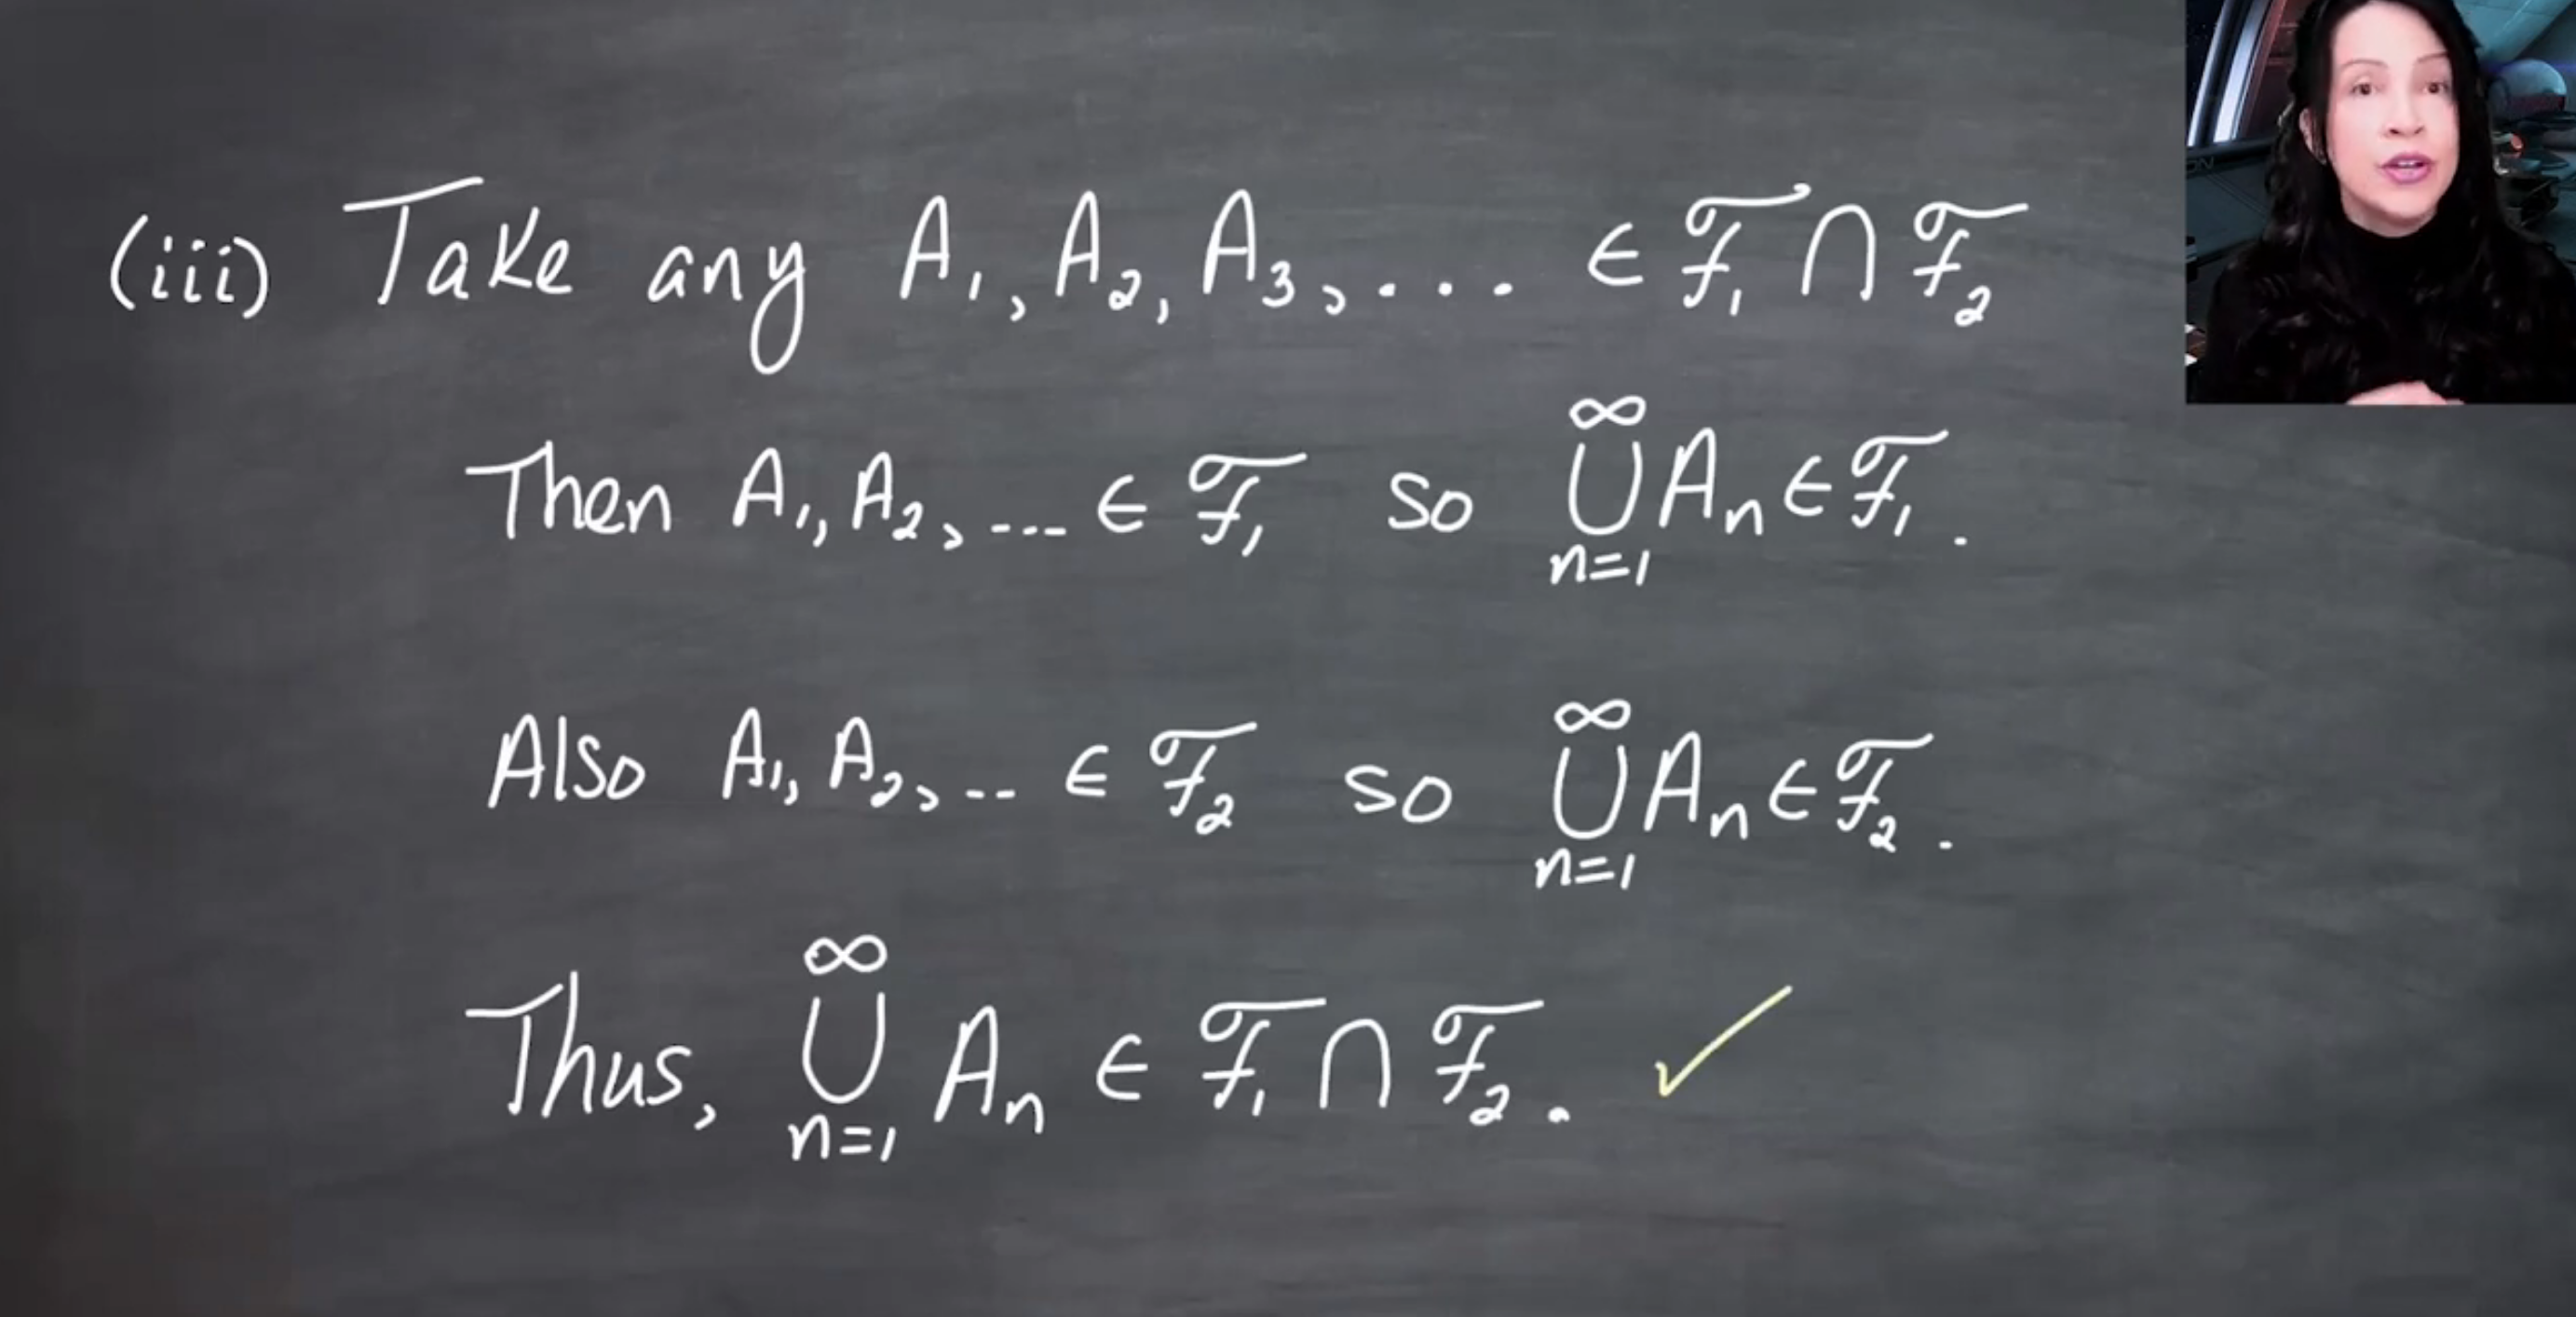 (iii) Take any A₁, A₂, A₃, .... ∈ ℱ₁ ∩ ℱ₂
Then A₁, A₂, ... ∈ ℱ₁ so ⋃_{n=1}^{∞} Aₙ ∈ ℱ₁.
Also A₁, A₂, ... ∈ ℱ₂ so ⋃_{n=1}^{∞} Aₙ ∈ ℱ₂.
Thus, ⋃_{n=1}^{∞} Aₙ ∈ ℱ₁ ∩ ℱ₂. ✓